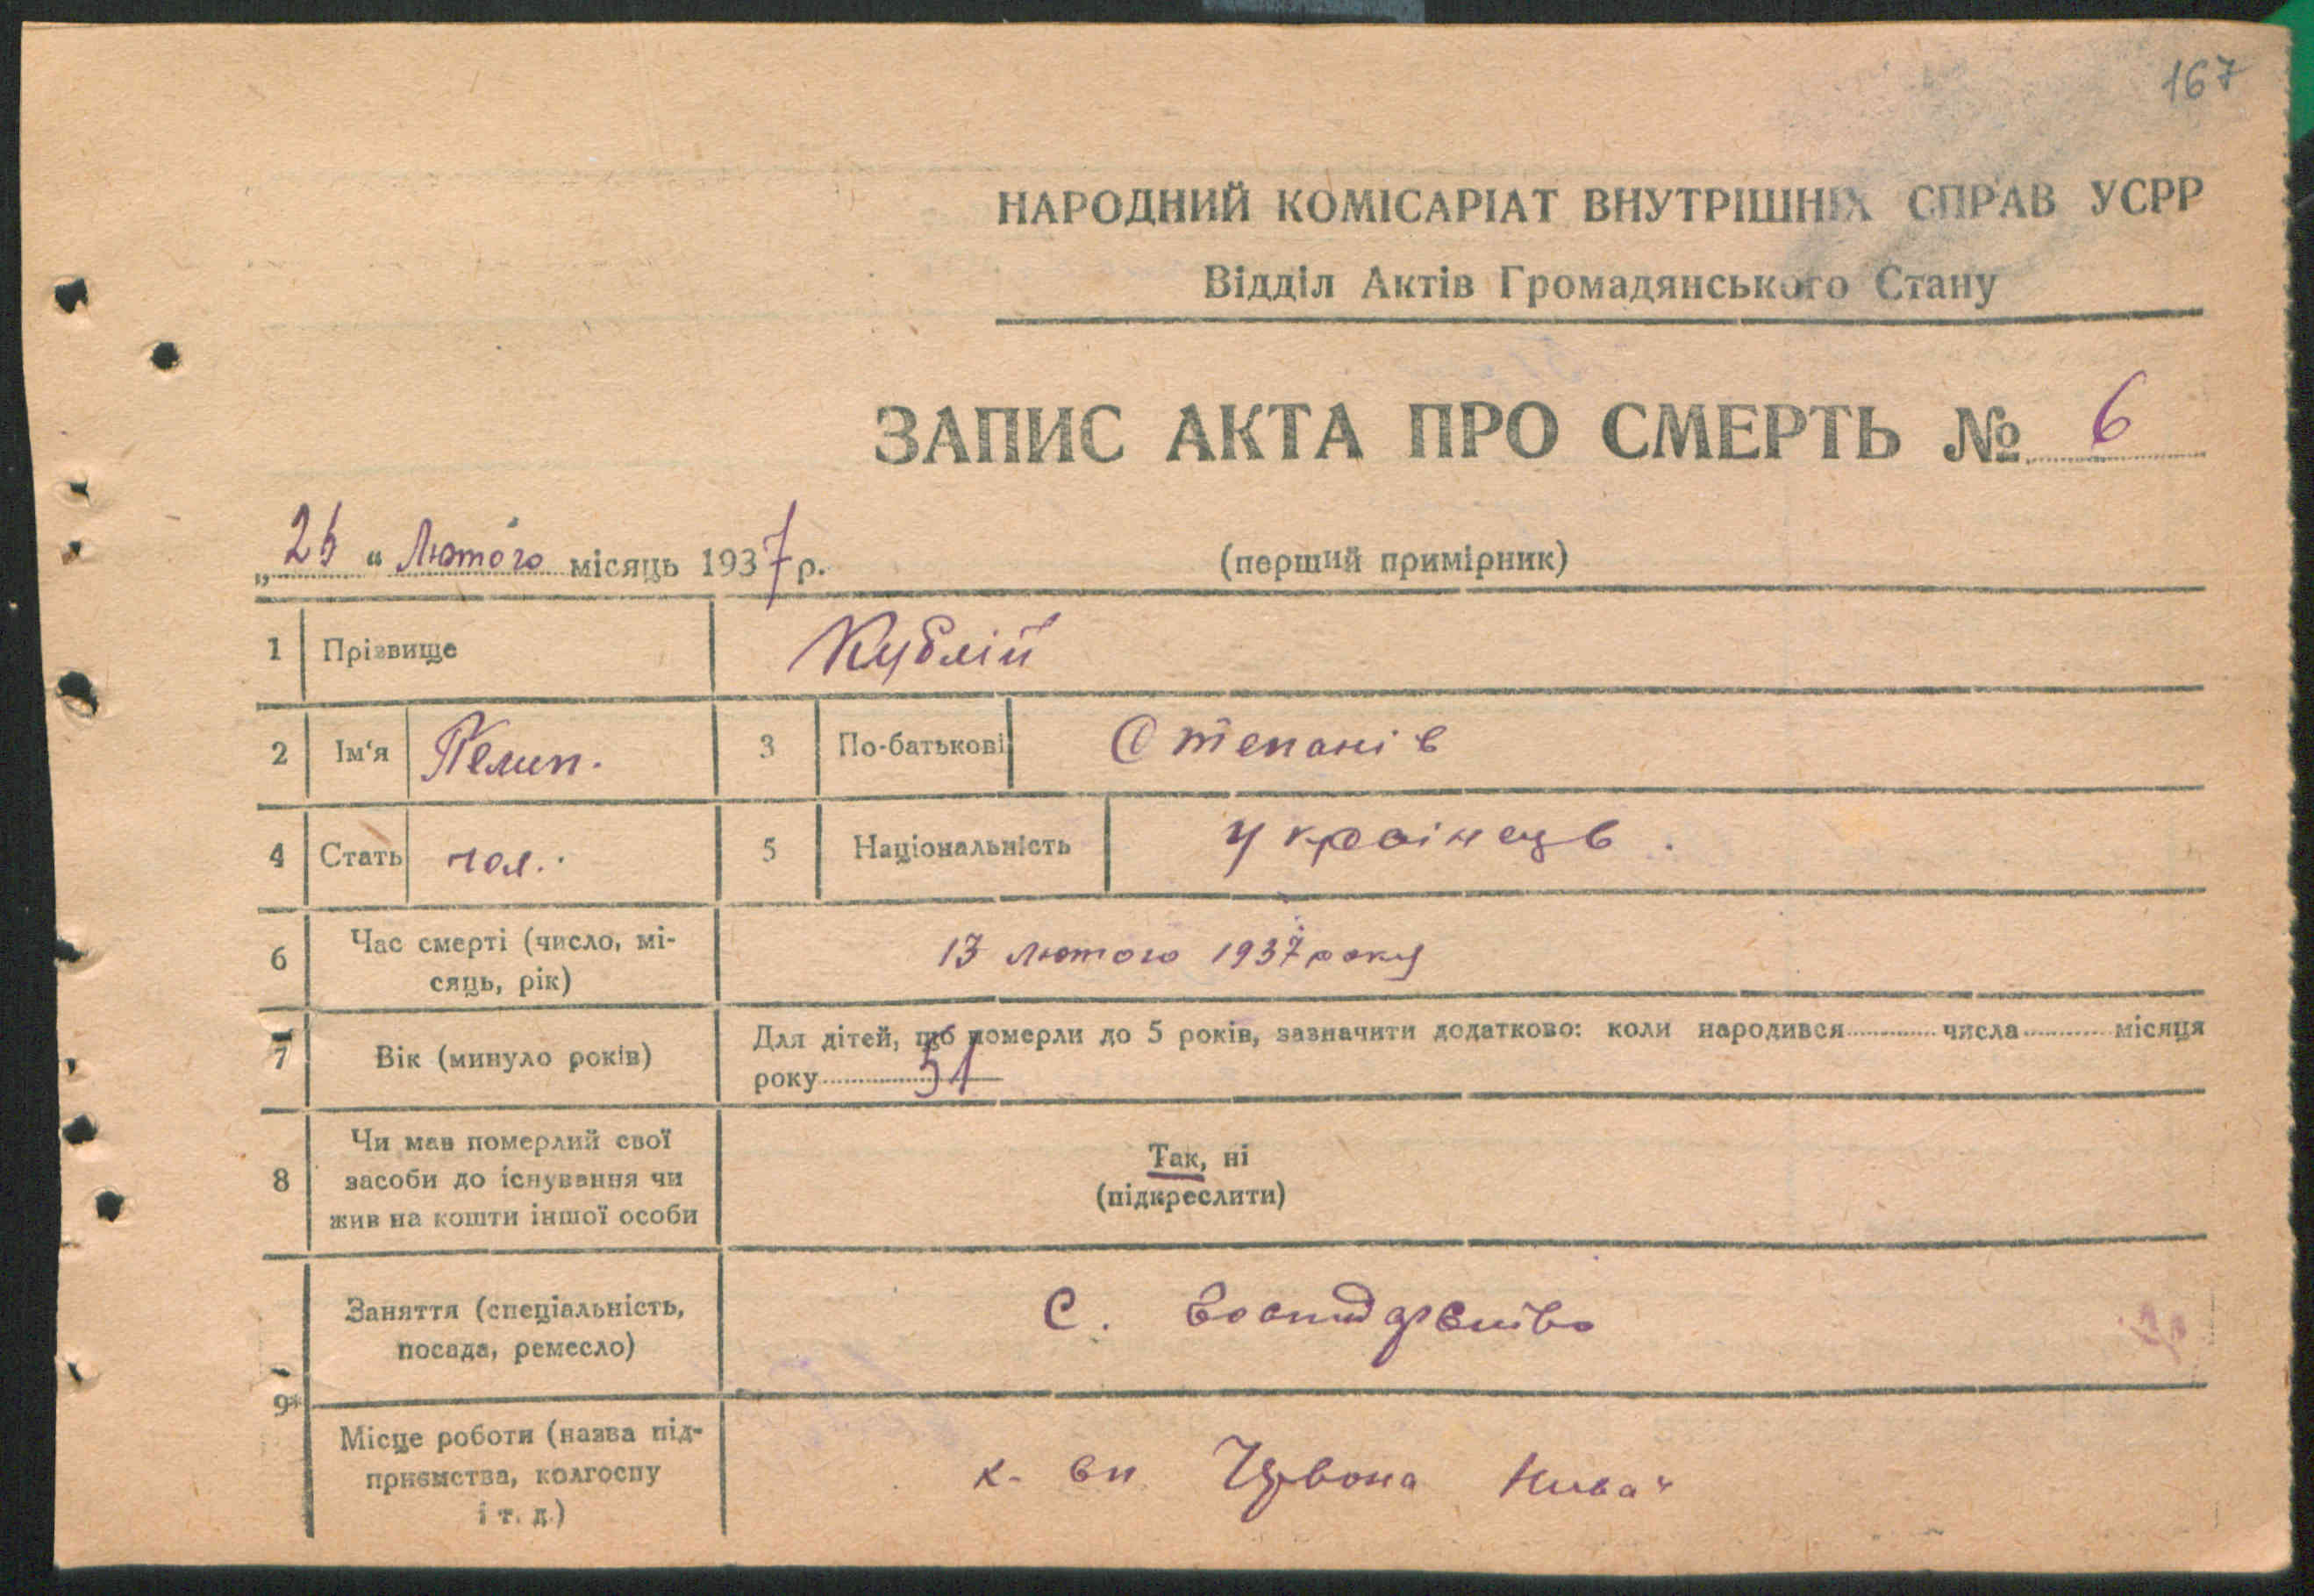 167
НАРОДНИЙ КОМІСАРІАТ ВНУТРІШНІХ СПРАВ УСРР
Відділ Актів Громадянського Стану
ЗАПИС АКТА ПРО СМЕРТЬ № 6
„ " Лютого місяць 1937 р.
(перший примірник)
1 Прізвище Кублій
2 Ім'я Пелип. 3 По-батькові Степанів
4 Стать чол. 5 Національність Українець.
6 Час смерті (число, мі-
сяць, рік) 13 лютого 1937 року
7 Вік (минуло років) Для дітей, що померли до 5 років, зазначити додатково: коли народився числа місяця
року 51
8 Чи мав померлий свої
засоби до існування чи
жив на кошти іншої особи
Так, ні
(підкреслити)
9 Заняття (спеціальність,
посада, ремесло) С.
Місце роботи (назва під-
приємства, колгоспу
і т. д.) Червона Нива"